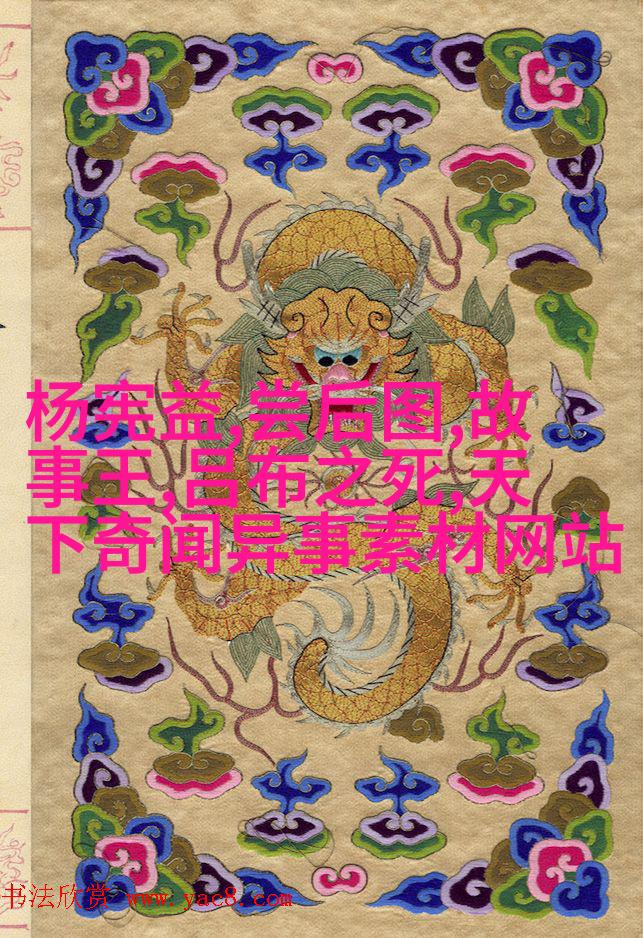 杨宪益,尝后图,故
事王,吕布之死,天
下奇闻异事素材网站
书法欣赏 www.yac8.com